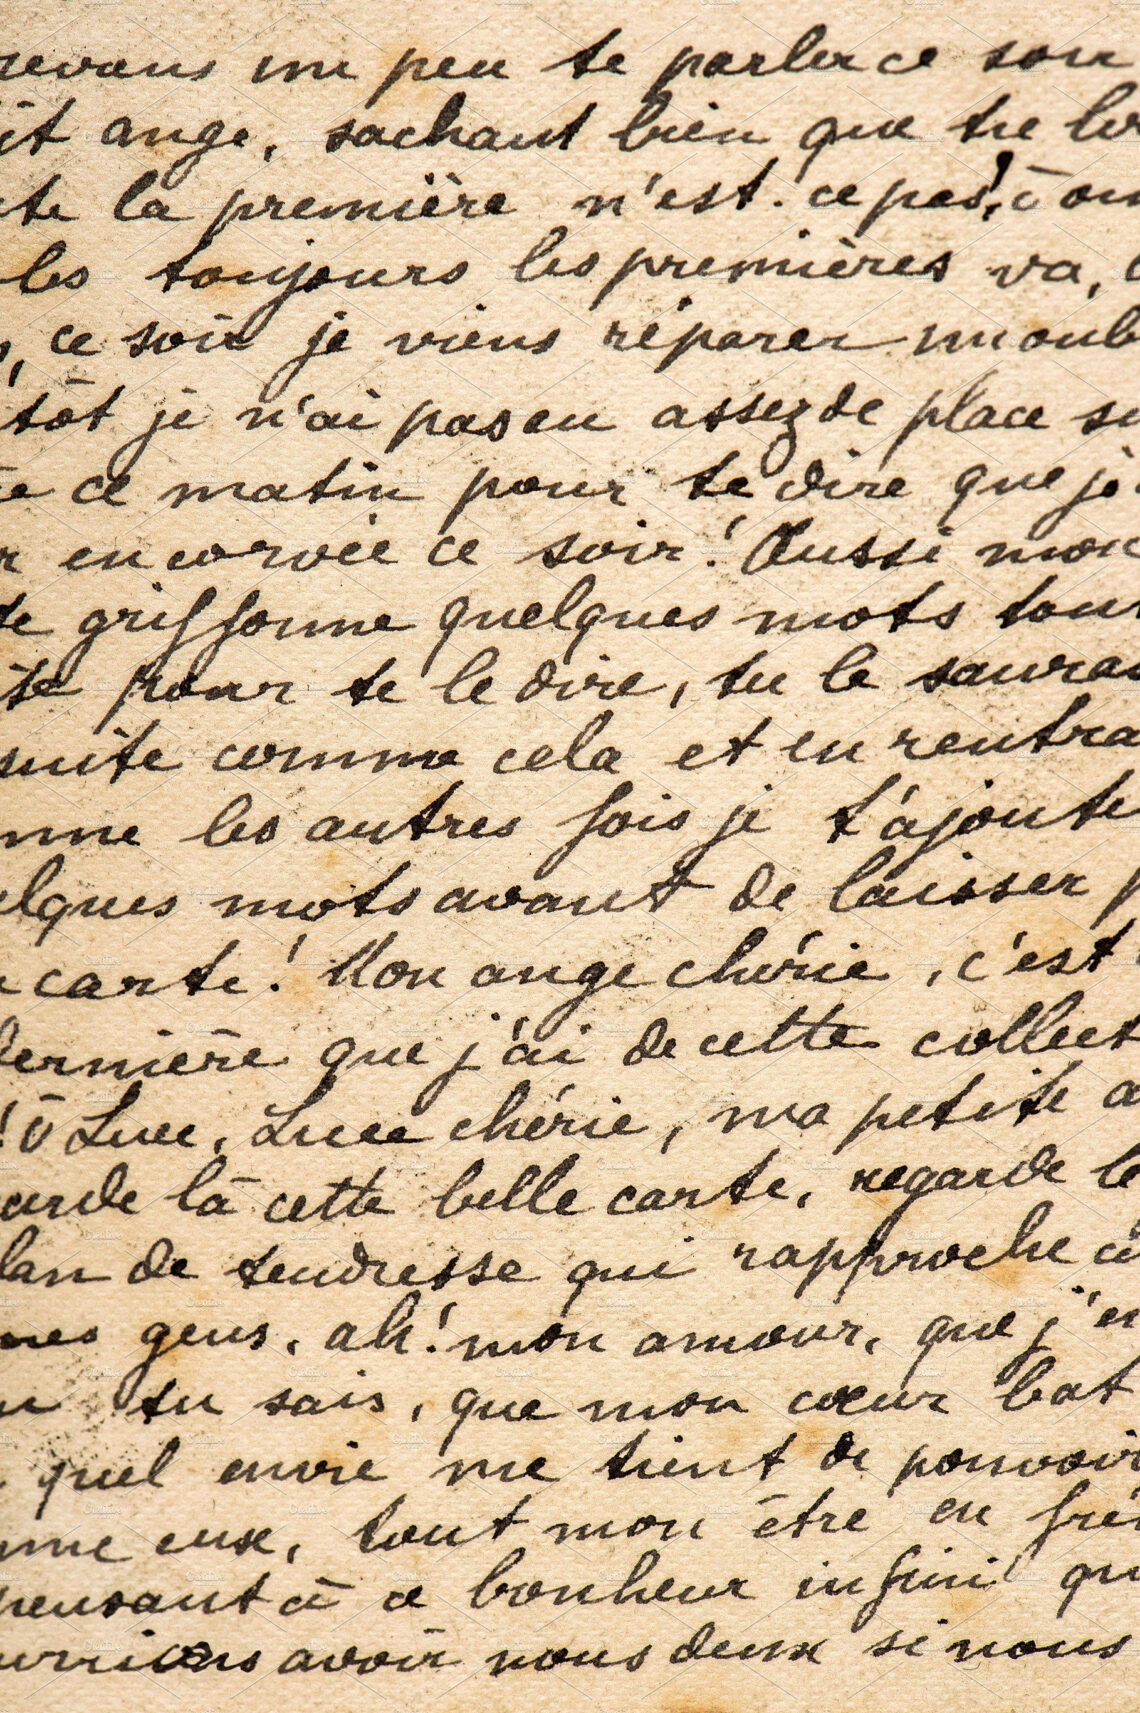 un peu te parler ce soir
ange, sachant bien que tu
la première n'est. ce pas!, ō
les toujours les premières va,
, ce soir je viens réparer un oub
tôt je n'ai pas eu assez de place su
ce matin pour te dire que je
r en corvée ce soir! Aussi mon
te griffonne quelques mots tout
pour te le dire, tu le sauras
suite comme cela et en rentra
mme les autres fois je t'ajoute
elques mots avant de laisser p
carte! Mon ange chérie, c'est
dernière que j'ai de cette collect
! ō Luce, Luce chérie, ma petite a
arde là cette belle carte, regarde le
lan de tendresse qui rapproche c
nes gens, ah! mon amour, que j'en
tu sais, que mon cœur bat
quel envie me tient de pouvoir
mme eux, tout mon être en fré
pensant à ce bonheur infini qu
urrions avoir nous deux si nous